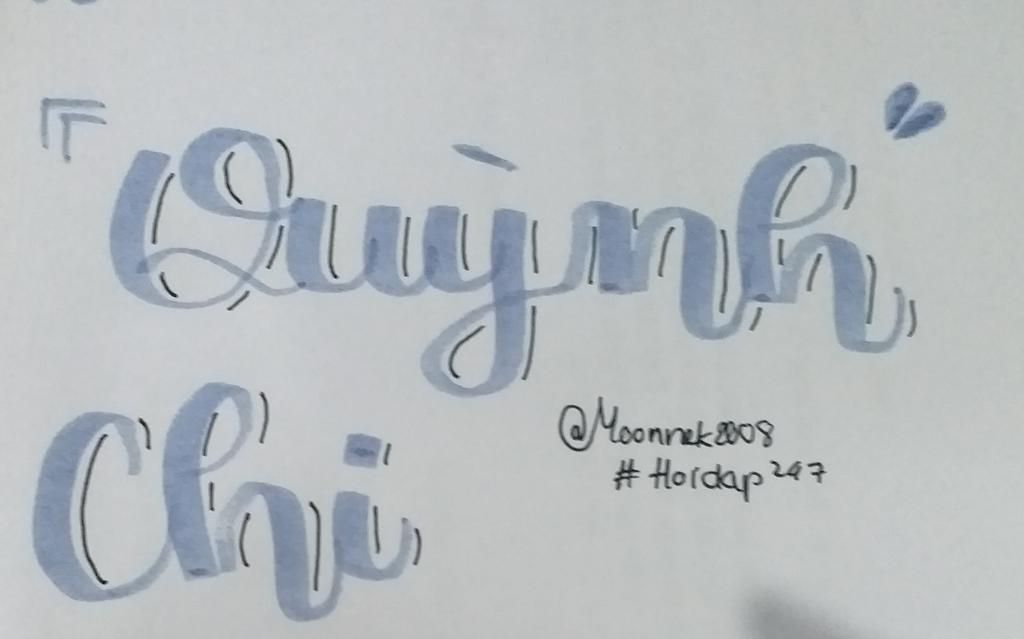 Quỳnh
Chi
@Moonnek2008
#Hoidap247